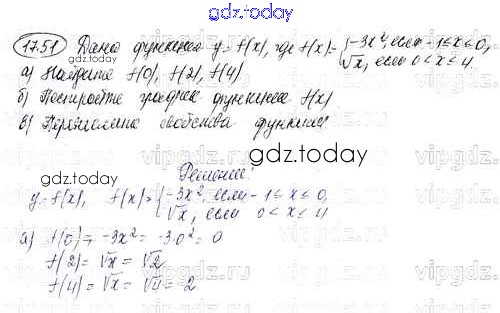 gdz.today
17.51 Дана функция y=f(x), где f(x)= {-3x², если -1≤x≤0,
√x, если 0<x≤4.
а) Найдите f(0), f(2), f(4).
б) Постройте график функции f(x)
в) Перечислите свойства функции
gdz.today
Решение:
y=f(x), f(x)= {-3x², если -1≤x≤0,
√x, если 0<x≤4
а) f(0)= -3x²= -3·0²=0
f(2)=√x=√2
f(4)=√x=√4=2
vipgdz.ru
gdz.today